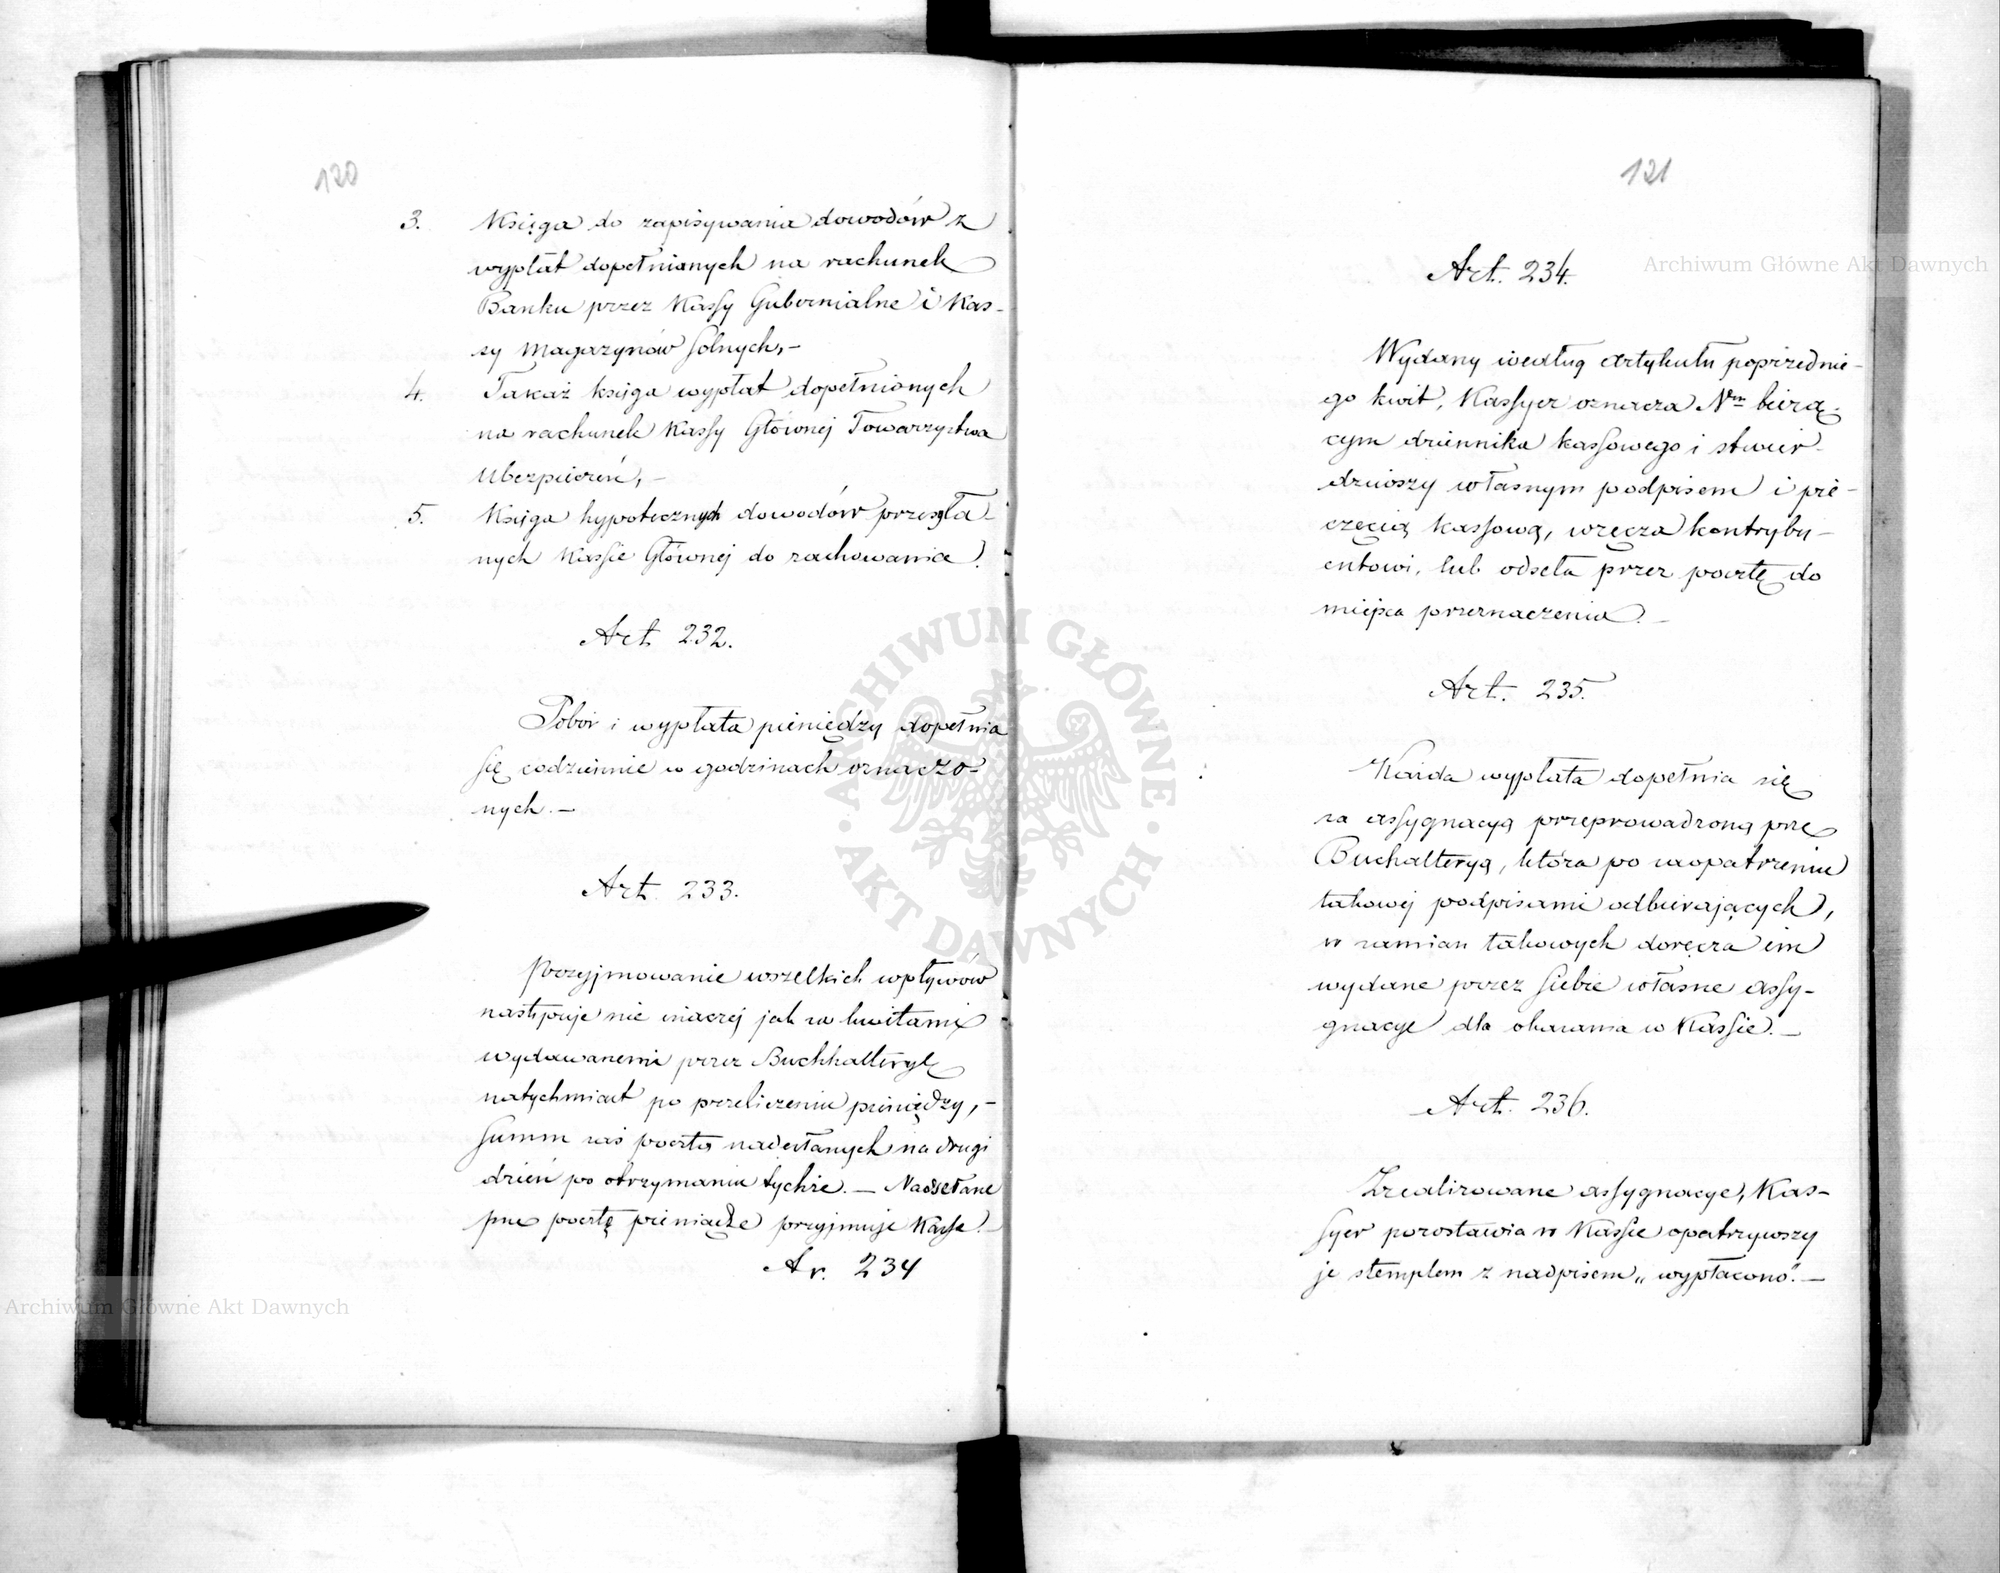 120
3. Księga do zapisywania dowodów z
wypłat dopełnianych na rachunek
Banku przez Kassy Gubernialne i Kas-
sy Magazynów Solnych,-
4. Takaż księga wypłat dopełnionych
na rachunek Kassy Głównej Towarzystwa
Ubezpieczeń,-
5. Księga hypotecznych dowodów przesyła-
nych Kassie Głównej do zachowania.
Art. 232.
Pobór i wypłata pieniędzy dopełnia
się codziennie w godzinach oznaczo-
nych.-
Art. 233.
Przyjmowanie wszelkich wpływów
następuje nie inaczej jak za kwitami
wydawanemi przez Buchhalteryę
natychmiast po przeliczeniu pieniędzy,-
Summ zaś pocztą nadesłanych na drugi
dzień po otrzymaniu tychże.- Nadsełane
prze pocztę pieniądze przyjmuje Kassa.-
Ar. 234
121
Art. 234.
Wydany według artykułu poprzednie-
go kwit, Kassyer oznacza Nm bieżą-
cym dziennika kassowego i stwier-
dziwszy własnym podpisem i pie-
częcią kassową, wręcza kontrybu-
entowi, lub odseła przez pocztę do
miejsca przeznaczenia.-
Art. 235.
Każda wypłata dopełnia się
za assygnacyą przeprowadzoną prze
Buchalteryą, która po zaopatrzeniu
takowej podpisami odbierających,
w zamian takowych doręcza im
wydane przez siebie własne assy-
gnacye dla okazania w Kassie.-
Art. 236.
Zrealizowane assygnacye, Kas-
syer pozostawia w Kassie opatrzywszy
je stemplem z nadpisem „wypłacono".-
Archiwum Główne Akt Dawnych
Archiwum Główne Akt Dawnych
ARCHIWUM GŁÓWNE
AKT DAWNYCH